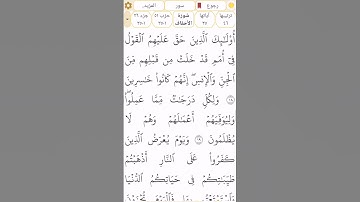 رجوع سور المزيد..
ترتيبها آياتها سُورَة حزب ٥١ جزء ٢٦
٤٦ ٣٥ الأحقاف
أُوْلَٰٓئِكَ ٱلَّذِينَ حَقَّ عَلَيْهِمُ ٱلْقَوْلُ
فِىٓ أُمَمٍ قَدْ خَلَتْ مِن قَبْلِهِم مِّنَ
ٱلْجِنِّ وَٱلْإِنسِ ۖ إِنَّهُمْ كَانُوا۟ خَٰسِرِينَ
﴿١٨﴾ وَلِكُلٍّ دَرَجَٰتٌ مِّمَّا عَمِلُوا۟ ۖ
وَلِيُوَفِّيَهُمْ أَعْمَٰلَهُمْ وَهُمْ لَا
يُظْلَمُونَ ﴿١٩﴾ وَيَوْمَ يُعْرَضُ ٱلَّذِينَ
كَفَرُوا۟ عَلَى ٱلنَّارِ أَذْهَبْتُمْ
طَيِّبَٰتِكُمْ فِى حَيَاتِكُمُ ٱلدُّنْيَا
وَٱسْتَمْتَعْتُم بِهَا فَٱلْيَوْمَ تُجْزَوْنَ